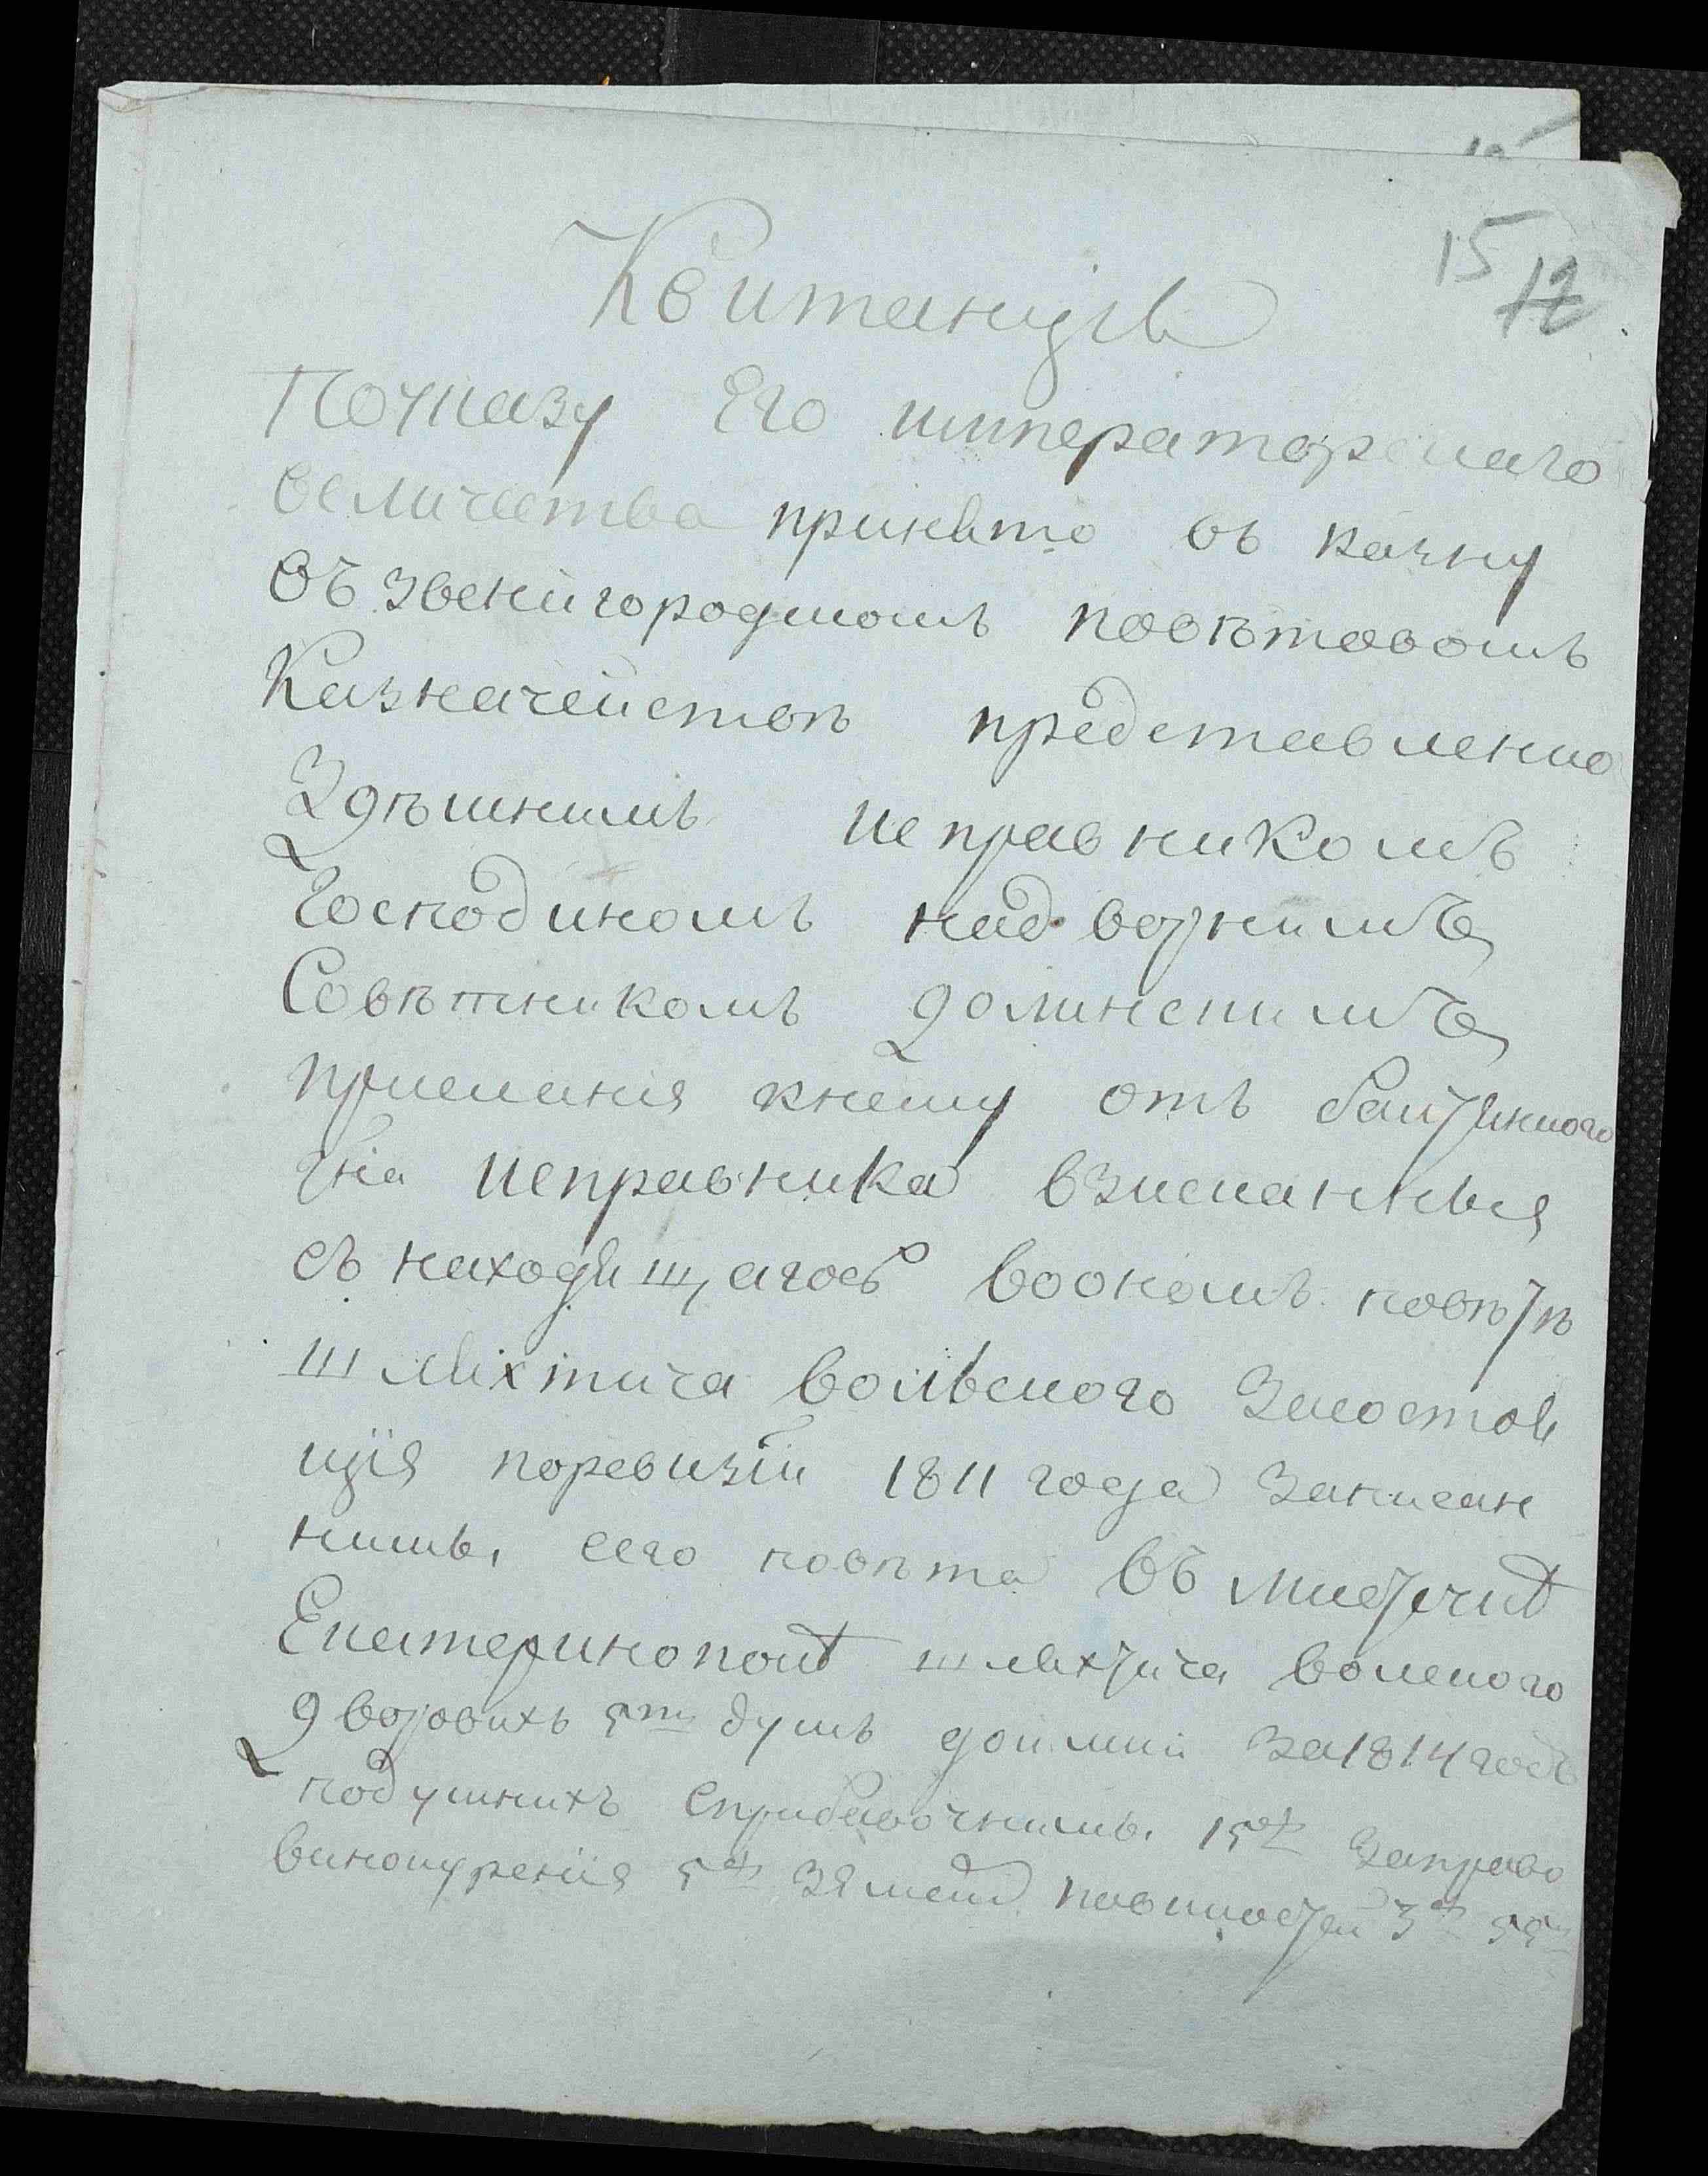 15
12
Квитанція
Поуказу Его императорскаго
величества принято въ казну
въ звенигородском повѣтовомъ
Казначействѣ представленно
Здѣшнимъ исправникомъ
Господиномъ надворнимъ
Совѣтникомъ Долинскимъ
присланія кнему отъ балтского
гна исправника взысканныя
съ находящагось вооном повѣтѣ
шляхтича вольского
ція поревизіи 1811 года записан
нимъ сего повѣта въ мистечкѣ
Екатеринополѣ шляхтича волского
дворовихъ 5ти душъ доимки за 1814 годъ
подушнихъ сприбавочними 15 заправо
винокуренія 5 земскі повиностей 3